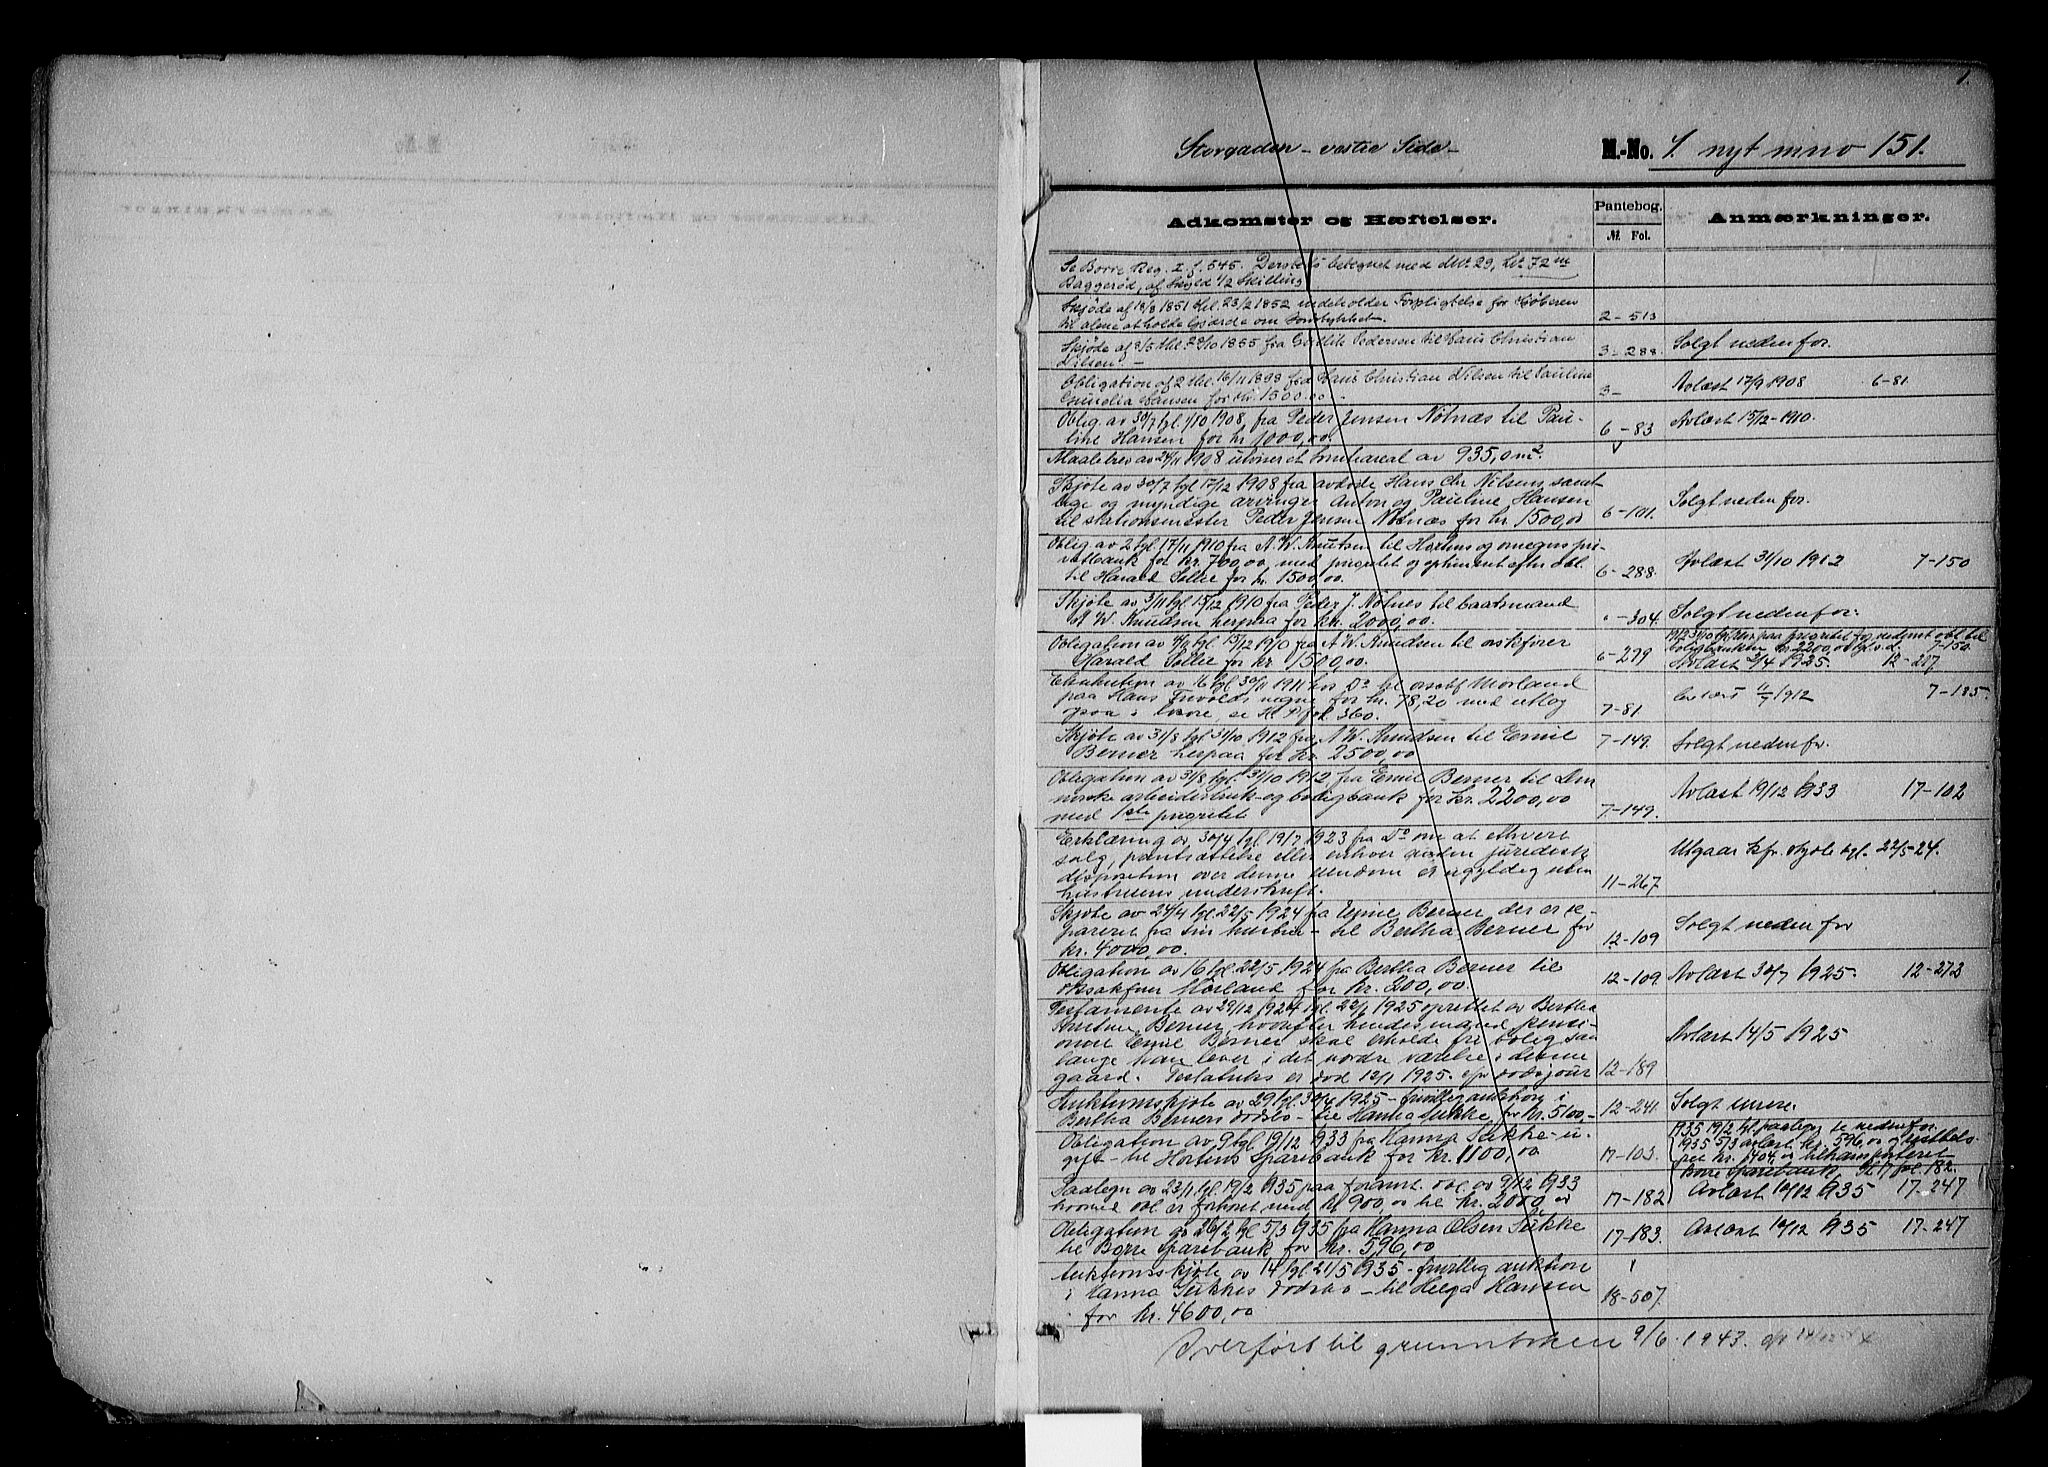 1.
Storgaden - vestre Side -
M.-No. 1. nyt mno 151.
Adkomster og Hæftelser.
Pantebog.
№ Fol.
Anmærkninger.
Se Borre Reg. I. f. 545. betegnet med
Baggerød, af Skyld 1/2 Skilling
Skjøde af 18/8 1851 thl. 23/2 1852 indeholder Forpligtelse for Kjøberen
til alene at holde Gjærde om Tomtstykket. 2-513
Skjøde af thl. fra Pedersen til Hans Christian
Nilsen. - 3-288. Solgt nedenfor.
Obligation af 2 thl. 16/11 1899 fra Hans Christian Nilsen til Pauline
Hansen for kr. 1500.00. 3- Avlæst 17/9 1908 6-81
Oblig. av 30/7 tgl. 1/10 1908, fra Peder Jensen Nøtnæs til Pau-
line Hansen for kr 1000,00. 6-83 Avlæst 15/12-1910.
Maalebrev av 24/11 1908 utviser et tomteareal av 935,0 m².
Skjøte av 30/7 tgl 17/12 1908 fra avdøde Hans Chr Nilsens samt-
lige og myndige arvinger Anton og Pauline Hansen
til stationsmester Peder Jensen Nøtnæs for kr. 1500,00 6-101. Solgt nedenfor.
Oblig av 2 tgl 17/11 1910 fra A. W. Knutsen til Hortens og omegns pri-
vatbank for kr. 700,00, med prioritet og opt. efter obl.
til Harald Sollie for kr. 1500,00. 6-288. Avlæst 31/10 1912 7-150
Skjøte av 3/11 tgl. 15/12 1910 fra Peder J. Nøtnes til baatsmand
A W. Knudsen herpaa for kr. 2000,00. "-304. Solgt nedenfor.
Obligation av tgl. 15/12 1910 fra A W. Knudsen til
Harald Sollie for kr 1500,00. 6-299
boligbanken kr. 2200,00 7-150.
Avlæst 2/4 1925. 12-217
Eksekution av 16 tgl. 30/11 1911 hos Do til orsakf Morland
paa Hans Trevolds vegne for kr. 78,20 med utlæg
i Borre, se fol 360. 7-81. 11/7 1912 7-185.
Skjøte av 31/8 tgl. 31/10 1912 fra A W. Knudsen til Emil
Berner herpaa for kr. 2500,00 7-149. Solgt nedenfor.
Obligation av 31/8 tgl. 31/10 1912 fra Emil Berner til Den
norske arbeiderbruk- og boligbank for kr. 2200,00
med 1ste prioritet 7-149. Avlæst 19/12 1933 17-102
Erklæring av 30/4 tgl 19/7 1923 fra Do om at ethvert
salg, pantsættelse eller enhver anden juridisk
disposition over denne eiendom er ugyldig uten
hustruens underskrift. 11-267 Utgaar kfr. skjøte tgl. 22/5-24.
Skjøte av 24/4 tgl. 22/5 1924 fra Emil Berner der er se-
pareret fra sin hustru - til Bertha Berner for
kr. 4000,00. 12-109 Solgt nedenfor
Obligation av 16 tgl 22/5 1924 fra Bertha Berner til
Morland for kr. 200,00. 12-109. Avlæst 30/7 1925. 12-272
Testamente av 29/12 1924 tgl. 22/1 1925 oprettet av Bertha
Berner, hvorefter hendes mand pensi-
onør Emil Berner skal erholde fri bolig saa
lange han lever i det nordre værelse i denne
gaard. Testatrix er død 12/1 1925. 12-189 Avlæst 14/5 1925
Auktionsskjøte av 29 tgl. 30/4 1925 - frivillig auktion i
Bertha Berners dødsbo - til Hanna Sukke for kr. 5100,- 12-241. Solgt
Obligation av 9 tgl. 19/12 1933 fra Hanna Sukke - u-
gift - til Hortens Sparebank for kr. 1100,00 17-103.
1935 19/2 tgl. paategn. se nedenfor.
1935 5/3 avlæst kr. 596,00 og
kr. 1404,00 transporteret
Borre Sparebank, 17 fol. 182.
Paategn av 23/1 tgl. 19/2 1935 paa foranst. obl. av 9/12 1933
hvorved obl er forhøiet med kr 900,00 til kr. 2000,00 17-182 Avlæst 10/12 1935 17-247
Obligation av 26/2 tgl 5/3 1935 fra Hanna Olsen Sukke
til Borre Sparebank for kr. 596,00 17-183. Avlæst 10/12 1935 17-247
Auktionsskjøte av 14 tgl. 21/5 1935 - frivillig auktion
i Hanna Sukkes dødsbo - til Helga Hansen
for kr. 4600,00 18-507.
Overført til grunnboken 9/6 1943.